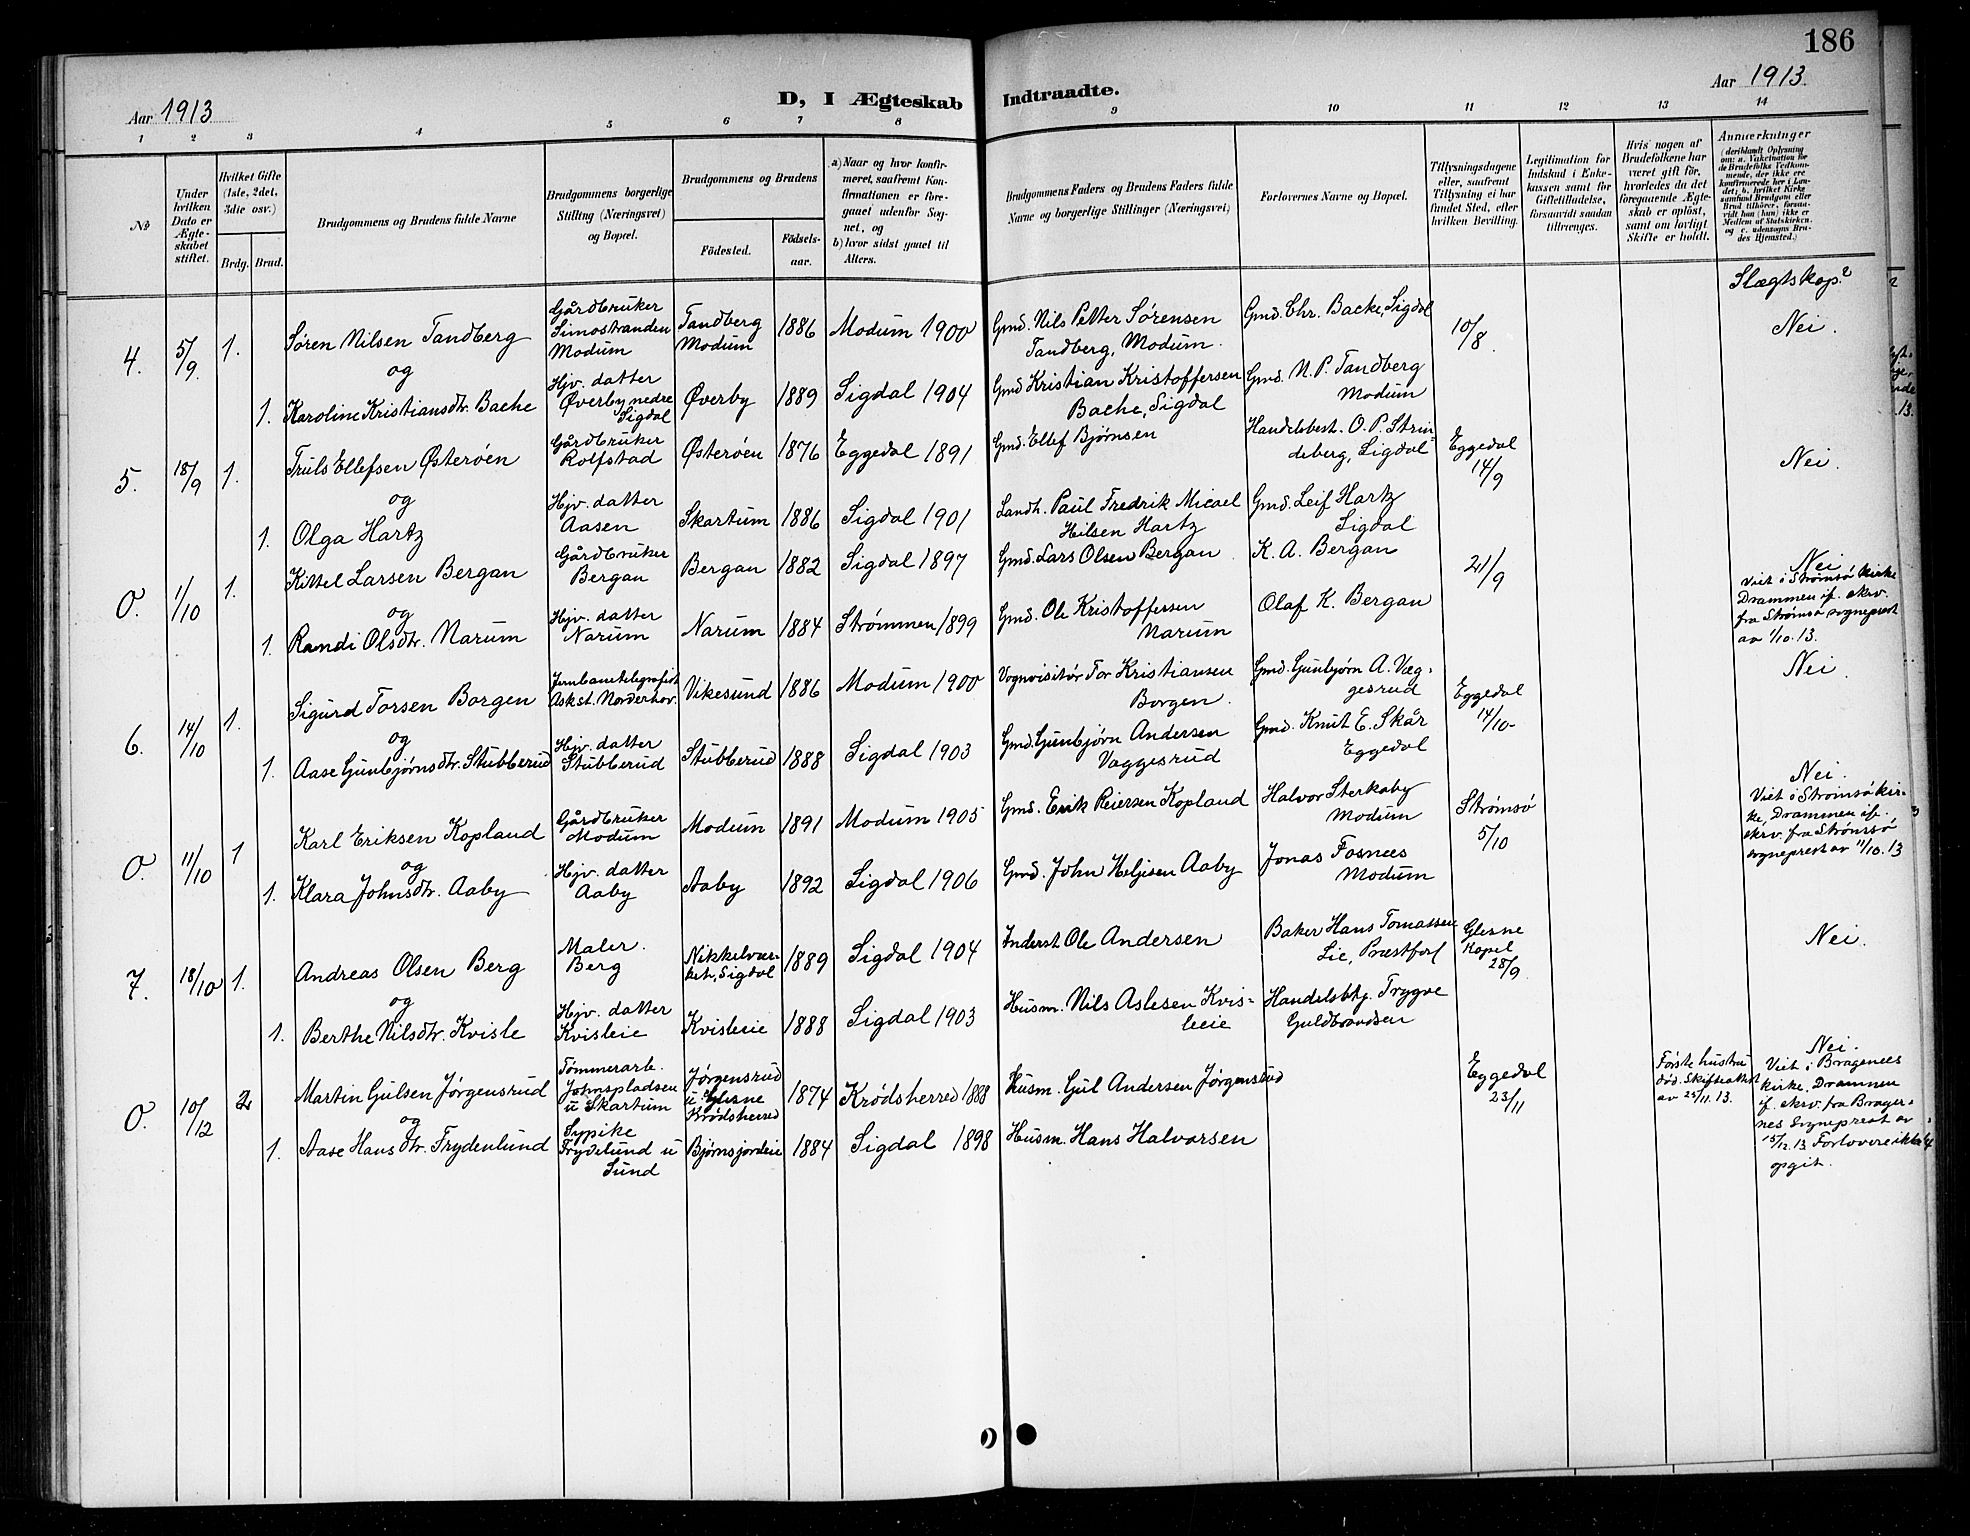 186
Aar 1913
D, I Ægteskab Indtraadte.
Aar 1913.
1 2 3 4 5 6 7 8 9 10 11 12 13 14
No
Under hvilken Dato er Ægteskabet stiftet.
Hvilket Gifte (1ste, 2det, 3die osv.)
Brdg. Brud.
Brudgommens og Brudens fulde Navne
Brudgommens borgerlige Stilling (Næringsvei) og Bopæl.
Brudgommens og Brudens
Födested.
Födsels-aar.
a) Naar og hvor konfirmeret, saafremt Konfirmationen er foregaaet udenfor Sognet, og
b) hvor sidst gaaet til Alters.
Brudgommens Faders og Brudens Faders fulde Navne og borgerlige Stillinger (Næringsvei)
Forlovernes Navne og Bopæl.
Tillysningsdagene eller, saafremt Tillysning ei har fundet Sted, efter hvilken Bevilling.
Legitimation for Indskud i Enkekassen samt for Giftetilladelse, forsaavidt saadan tiltrænges.
Hvis nogen af Brudefolkene har været gift för, hvorledes da det foregaaende Ægteskab er oplöst, samt om lovligt Skifte er holdt.
Anmærkninger
(deriblandt Oplysning om: a. Vakcination for de Brudefolks Vedkommende, der ikke ere konfirmerede her i Landet; b. hvilket Kirkesamfund Brudgom eller Brud tilhörer, forsaavidt han (hun) ikke er Medlem af Statskirken og c. udensogns Brudes Hjemsted.)
Slægtskap?
4. 5/9 1. Søren Nilsen Tandberg
Gårdbruker Simostranden Modum
Tandberg Modum 1886 Modum 1900
Gmd. Nils Petter Sørensen Tandberg, Modum.
Gmd. Chr. Backe, Sigdal
10/8.
Nei.
og
1. Karoline Kristiansdtr. Bache
Hjv. datter Øverby nedre Sigdal
Øverby 1889 Sigdal 1904
Gmd Kristian Kristoffersen Bache, Sigdal
Gmd. N. P. Tandberg Modum
5. 18/9 1. Truls Ellefsen Østerøen
Gårdbruker Rolfstad
Østerøen 1876 Eggedal 1891
Gmd. Ellef Bjørnsen
Handelsbest. O. P. Strindeberg, Sigdal
Eggedal 14/9
Nei.
og
1. Olga Hartz
Hjv. datter Aasen
Skartum 1886 Sigdal 1901
Landh. Paul Fredrik Micael Hilsen Hartz
Gmd. Leif Hartz Sigdal
0. 1/10 1. Kittel Larsen Bergan
Gårdbruker Bergan
Bergan 1882 Sigdal 1897
Gmd. Lars Olsen Bergan
K. A. Bergan
21/9
Nei
Viet i Strømsø kirke
Drammen if. skrv.
fra Strømsø sogneprest
av 1/10.13.
og
1. Randi Olsdtr. Narum
Hjv. datter Narum
Narum 1884 Strømmen 1899
Gmd. Ole Kristoffersen Narum
Olaf K. Bergan
6. 14/10 1. Sigurd Torsen Borgen
Jernbanetelegrafist Askst. Norderhov.
Vikesund 1886 Modum 1900
Vognvisitør Tor Kristiansen Borgen.
Gmd. Gunbjørn A. Væggesrud
Eggedal 14/10-
Nei
og
1. Aase Gunbjørnsdtr. Stubberud
Hjv. datter Stubberud
Stubberud 1888 Sigdal 1903
Gmd. Gunbjørn Andersen Vaggesrud
Gmd. Knut E. Skår Eggedal
0. 11/10 1 Karl Eriksen Kopland
Gårdbruker Modum
Modum 1891 Modum 1905
Gmd. Erik Reiersen Kopland
Halvor Sterkaby Modum
Strømsø 5/10
Nei.
Viet i Strømsøkirke, Drammen if.
skrv. fra Strømsø
sogneprest av 11/10.13
og
1. Klara Johnsdtr. Aaby
Hjv. datter Aaby
Aaby 1892 Sigdal 1906
Gmd. John Helgesen Aaby
Jonas Fosnæs Modum
7. 18/10 1. Andreas Olsen Berg
Maler. Berg
Nikkelværket, Sigdal 1889 Sigdal 1904
Inderst Ole Andersen
Baker Hans Tomassen Lie, Præstfos
Glesne Kapel 28/9.
Nei.
og
1. Berthe Nilsdtr. Kvisle
Hjv. datter Kvisleie
Kvisleie 1888 Sigdal 1903
Husm. Nils Aslesen Kvisleeie
Handelsbtj. Trygve Guldbrandsen
0. 10/12 2 Martin Gulsen Jørgensrud
Tømmerarb. Johnspladsen u Skartum
Jørgensrud u. Glesne Krødsherred
1874 Krødsherred 1888
Husm. Gul Andersen Jørgensrud
Eggedal 23/11
Første hustru
død. Skifteattest
av 25/11.13.
Nei.
Viet i Bragenes
kirke, Drammen
if. skrv. fra Bragernes sogneprest av
15/12.13 Forlovere ikke
opgit.
og
1. Aase Hansdtr. Frydenlund
Sypike Frydelund u Sund
Bjørnsjordeie 1884 Sigdal 1898
Husm. Hans Halvorsen